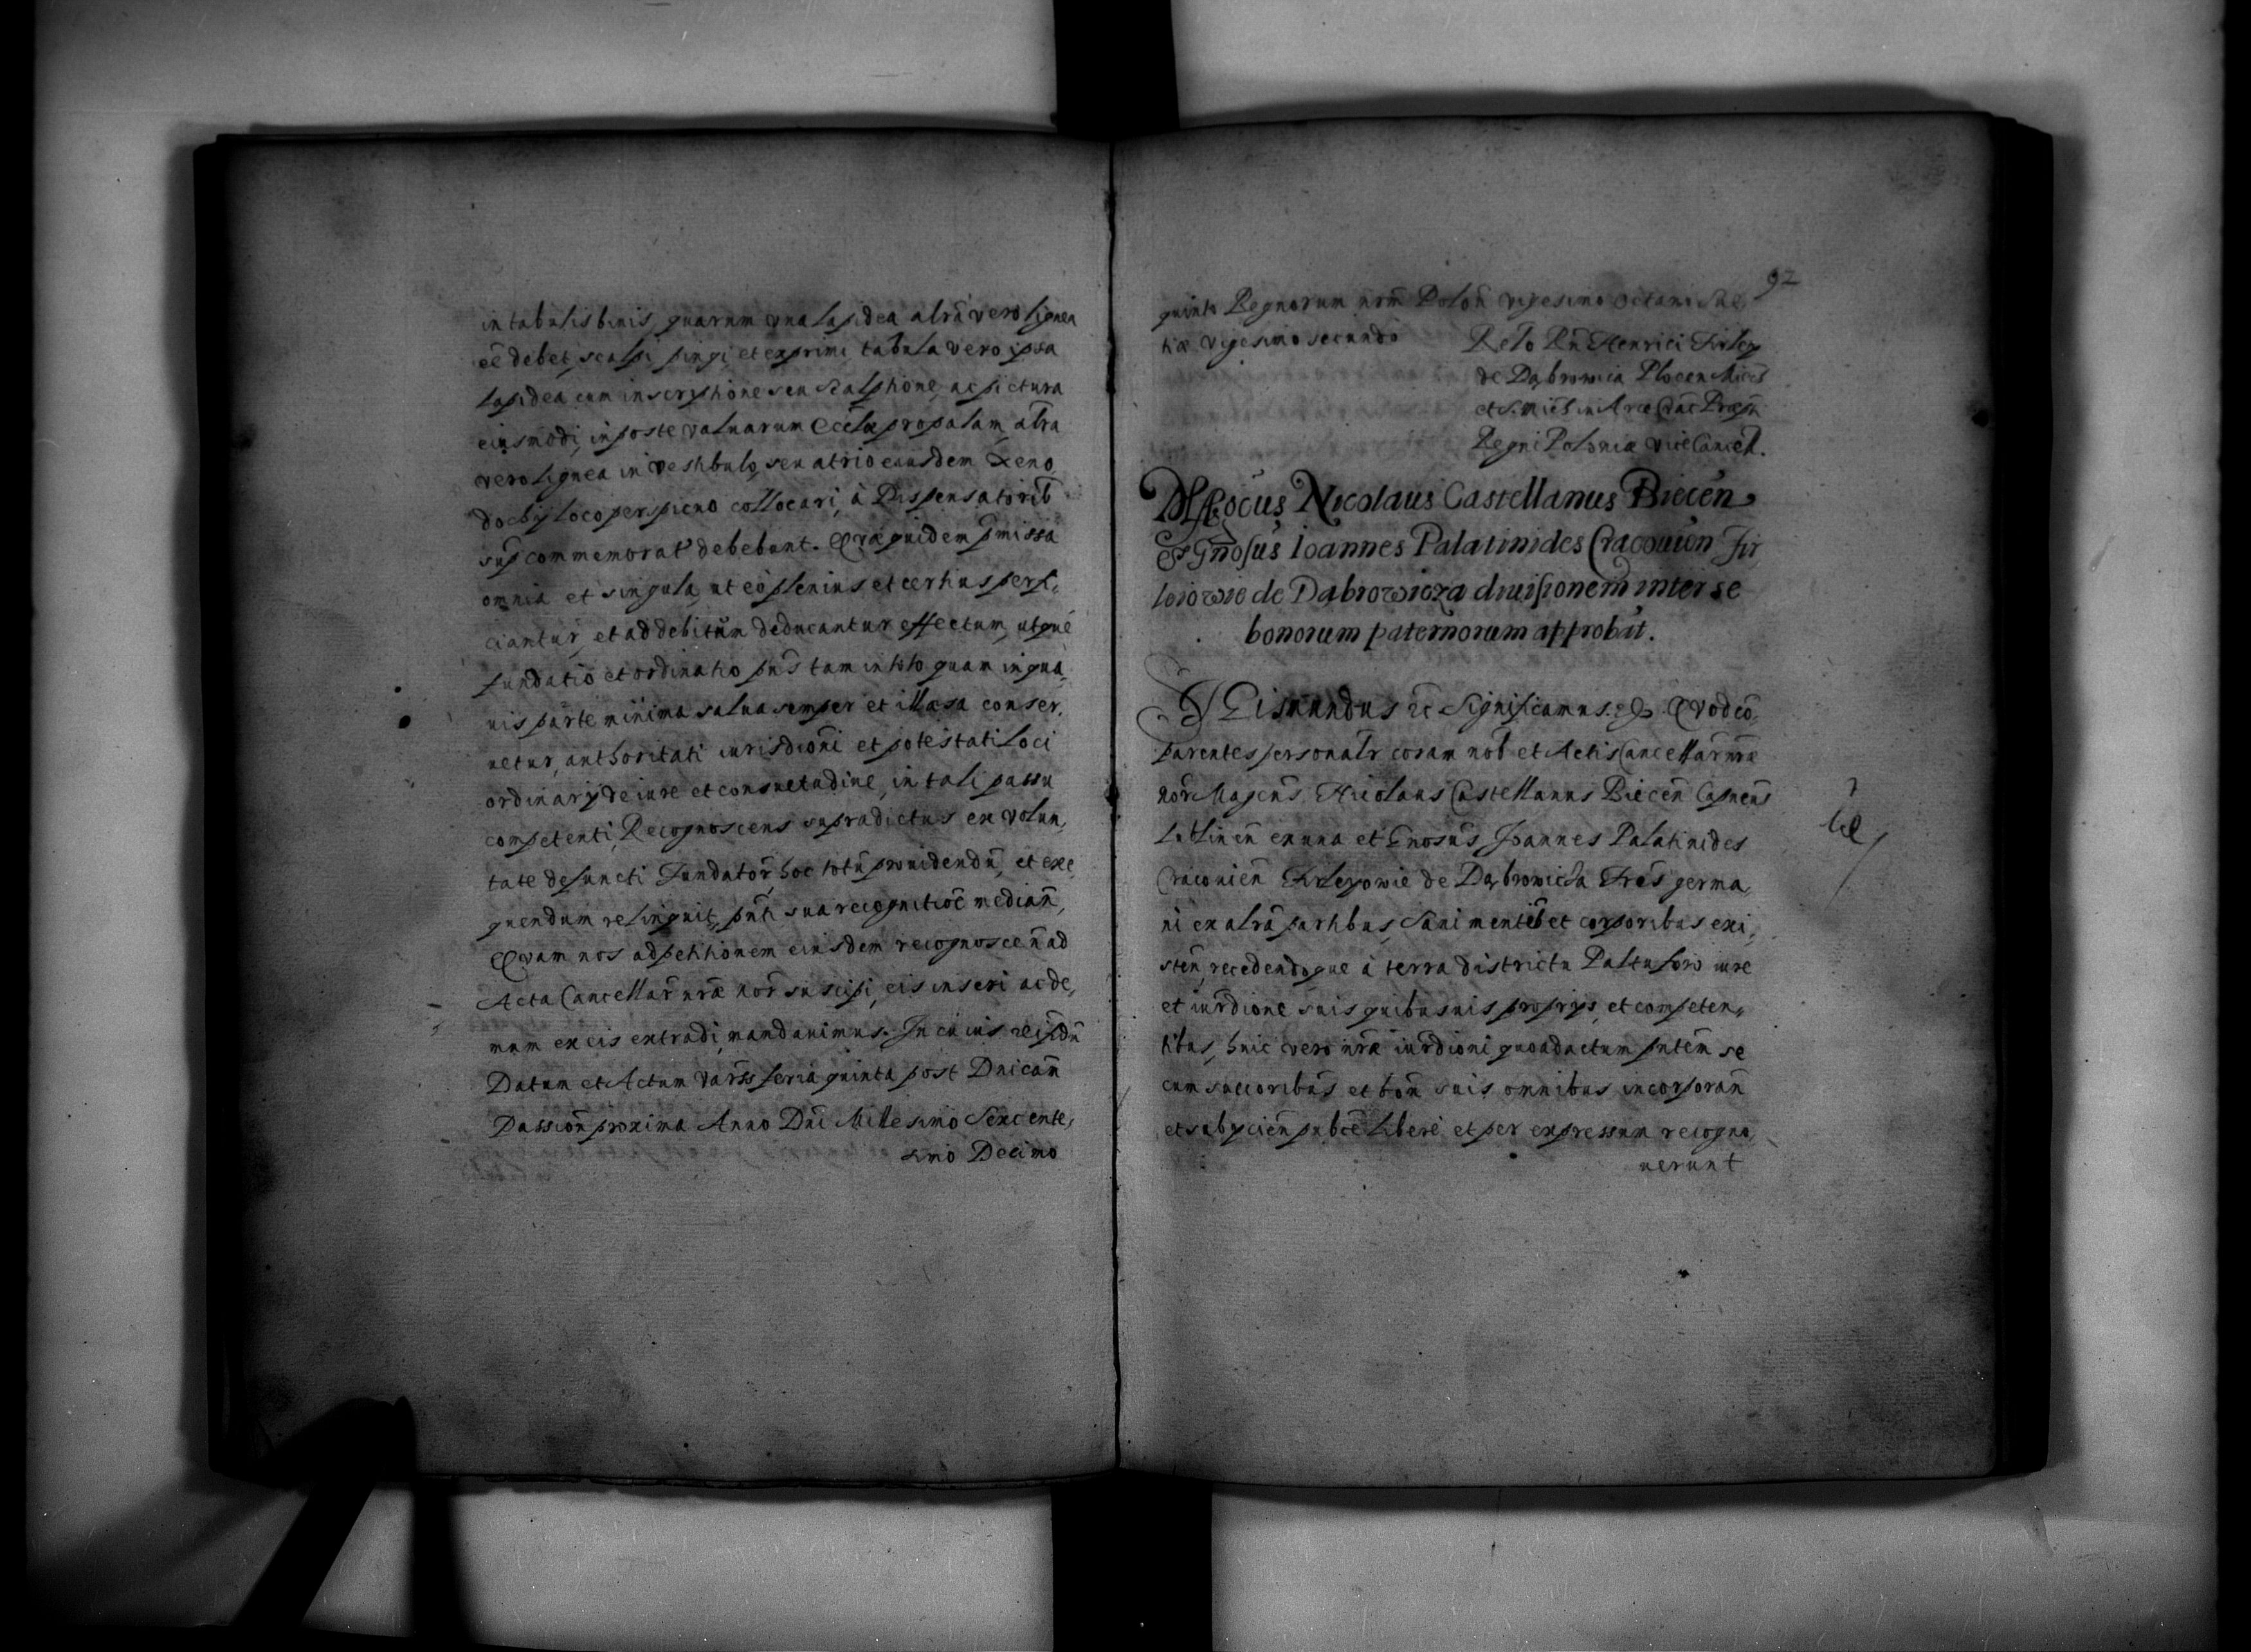 in tabulis binis, quarum vna lapidea alrā vero lignea
eē debet, scalpi pingi, et exprimi, tabula vero ipsa
lapidea cum inscriptione seu scalptione, ac pictura
eiusmodi, in poste valuarum Eccłæ propalam, altra
vero lignea in vestibulo, seu atrio eiusdem Xeno,
dochij loco perspicuo collocari, à Dispensatorib
sup commemorat debebunt. Qvæ quidem pmissa
omnia et singula, ut eò plenius et certius perfi,
ciantur, et ad debitum deducantur effectum, utque
fundatio et ordinatio pns tam in toto quam in qua,
uis parte minima salua semper et illæsa conser,
uetur, authoritati iurisdioni et potestati Loci
ordinarij de iure et consuetudine, in tali passu
competenti, Recognoscens supradictus ex volun,
tate defuncti Fundator, hoc totū prouidendū, et exe,
quendum relinquit, pnti sua recognitioē median,
Qvam nos ad petitionem eiusdem recognoscen ad
Acta Cancellar nræ nor suscipi, eis inseri ac de,
mum ex eis extradi, mandauimus. In cuius rei fidū
Datum et Actum Vars feria quinta post Dnicam
Passion proxima Anno Dni Millesimo Sexcente,
simo Decimo
92
quinto Regnorum nrm Polon vigesimo octauo Sue
tiæ vigesimo secundo
Relo Rn Henrici Firley
de Dąbrowica Plocen
Regni Poloniæ Vice Cancel.
Nicolaus Castellanus Biecen
et Gnosus Ioannes Palatinides Cracouien Fir
leiowie de Dąbrowicza diuisionem inter se
bonorum paternorum approbāt.
Sigismundus &c Significamus. &c Qvod cō,
parentes personalr coram nob et Actis Cancellar nræ
nor Magcus Nicolaus Castellanus Biecen Capneus
Lublinen ex una et Gnosus Joannes Palatinides
Cracouien Firleyowie de Dąbrowicza Fres germa,
ni ex alra partibus, Sani mentib et corporibus exi,
sten, recedendoque à terra districtu Palatu foro iure
et iurdione suis quibusuis proprijs, et competen,
tibus, huic vero nræ iurdioni quoad actum pntem se
cum succoribus et bon suis omnibus incorporan
et subijcien pubce libere et per expressum recogno,
uerunt